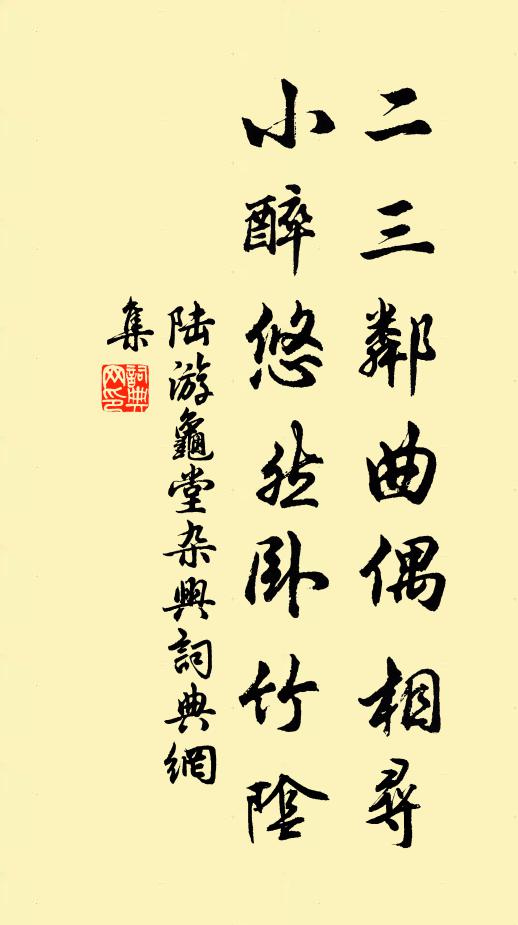 二三鄰曲偶相尋
小醉悠然卧竹陰
陆游龜堂杂興詞典網
集
詞典网印